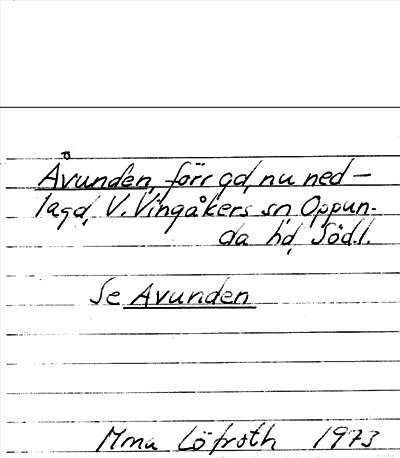 Åvunden, förr gd, nu ned-
lagd, V. Vingåkers sn, Oppun-
da hd, Södl.
Se Avunden
Mma Löfroth 1973